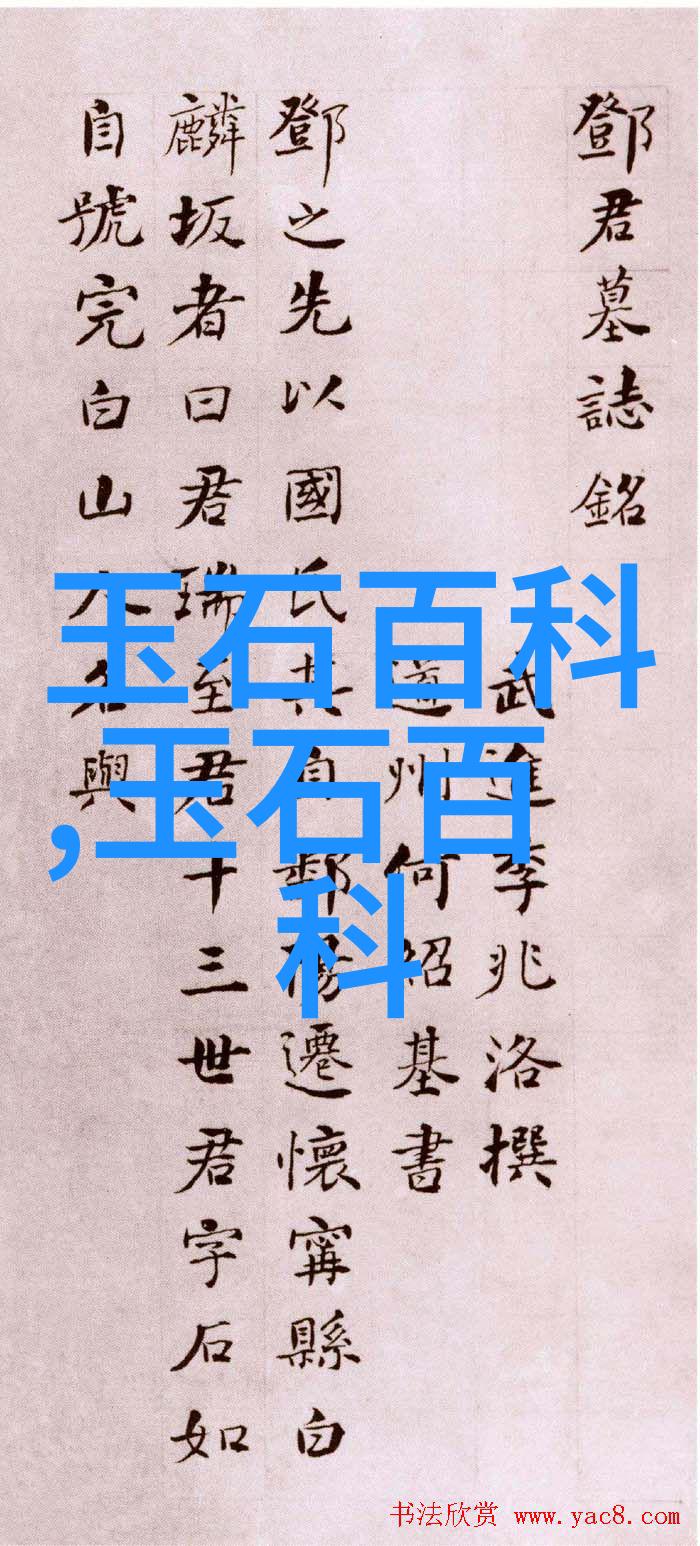 鄧君墓誌銘
武進李兆洛撰
道州何紹基書
鄧之先以國氏其自鄱陽遷懷寧縣白
麟坂者曰君瑞至君十三世君字石如
自號完白山人名與
玉石百科
,玉石百
科
书法欣赏 www.yac8.com